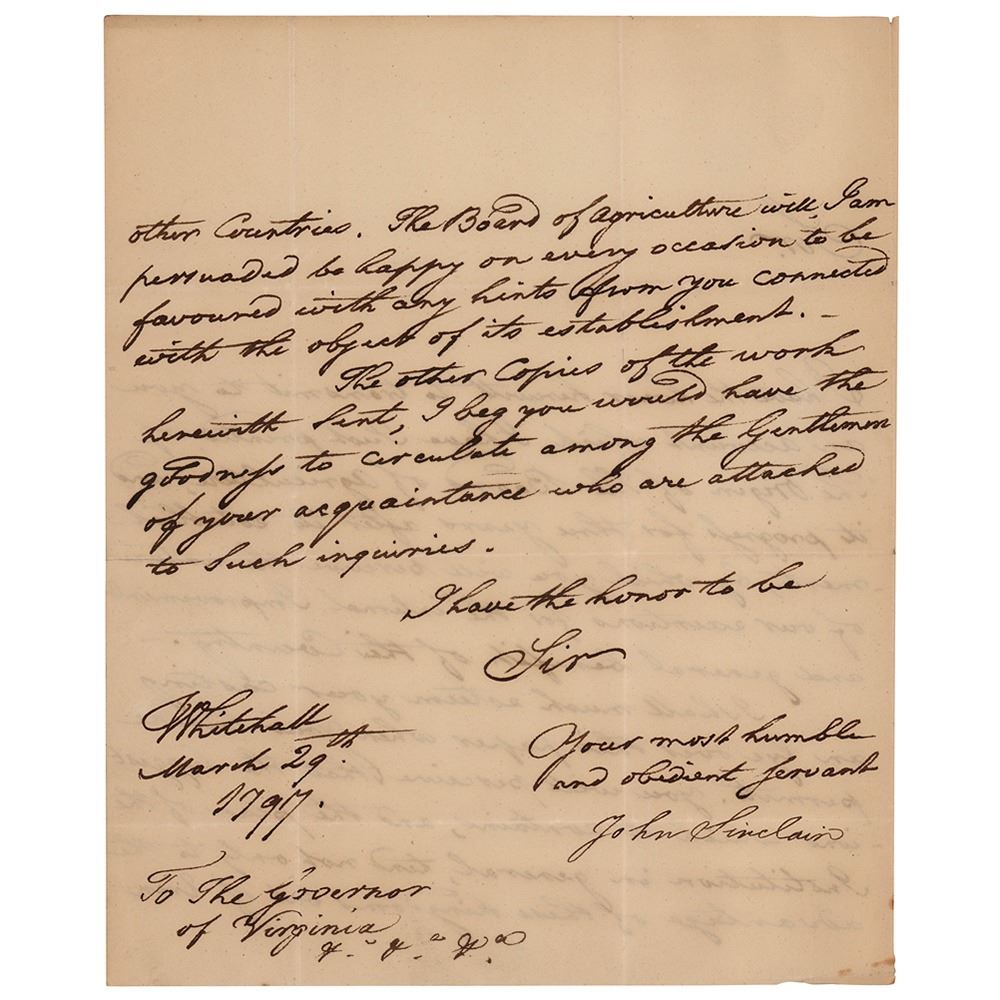 other Countries. The Board of Agriculture will, I am
persuaded be happy on every occasion to be
favoured with any hints from you connected
with the object of its establishment. –
The other Copies of the work
herewith Sent, I beg you would have the
goodness to circulate among the Gentlemen
of your acquaintance who are attached
to Such inquiries.
I have the honor to be
Sir
Whitehall
March 29th
1797.
Your most humble
and obedient servant
John Sinclair
To The Governor
of Virginia